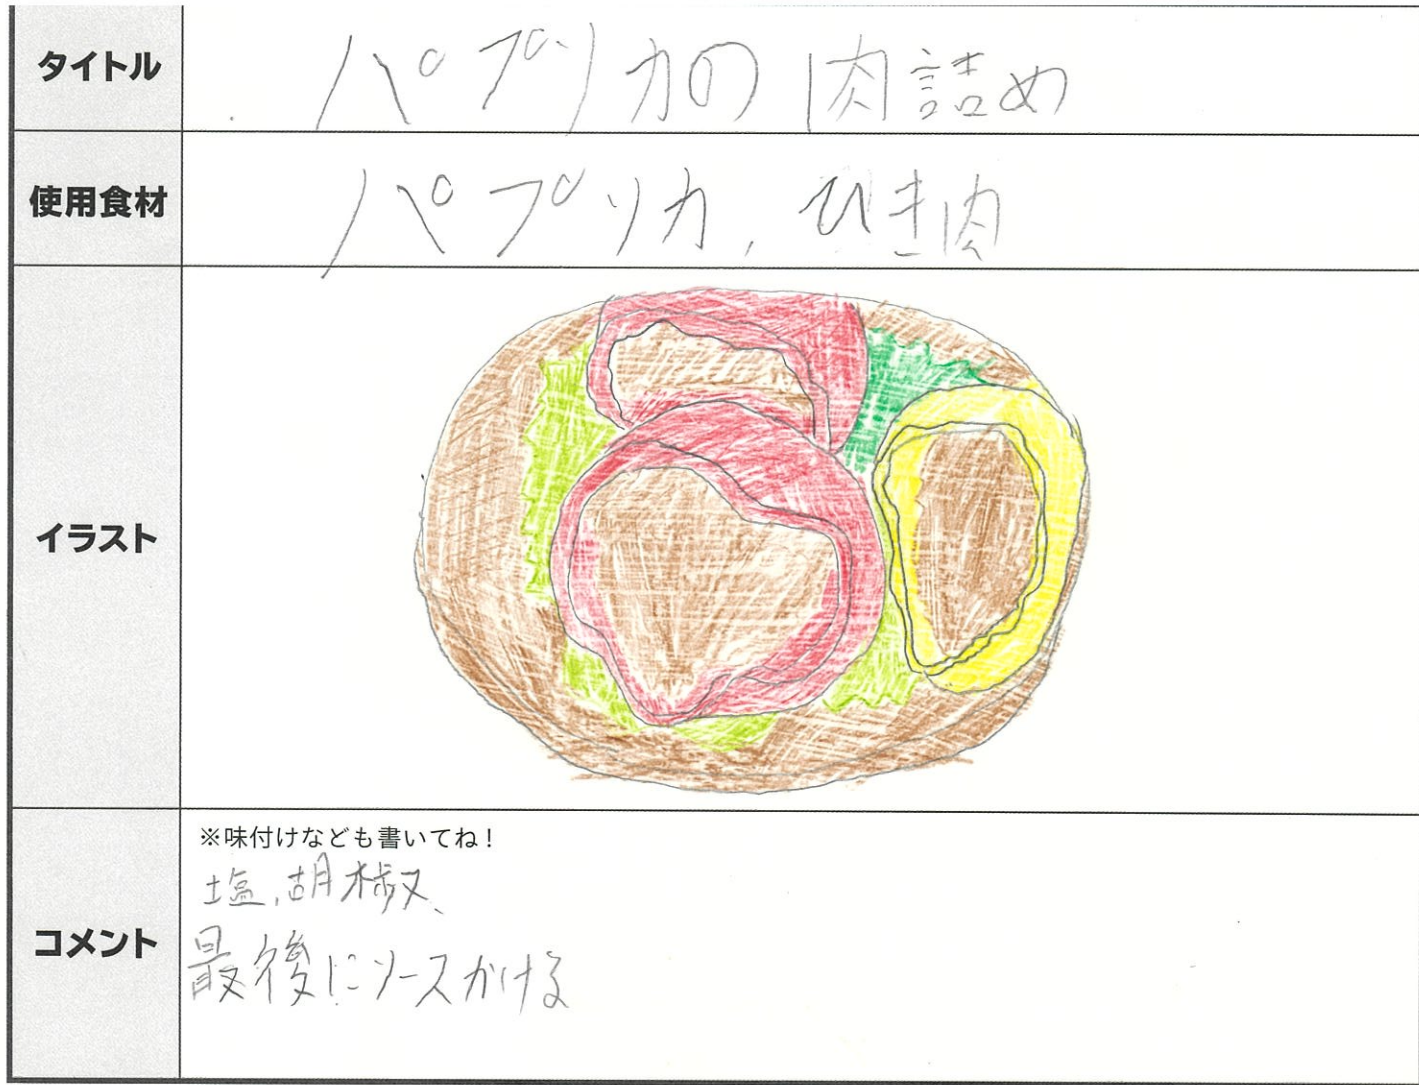 タイトル
パプリカの肉詰め
使用食材
パプリカ、ひき肉
イラスト
コメント
※味付けなども書いてね！
塩、胡椒、
最後にソースかける